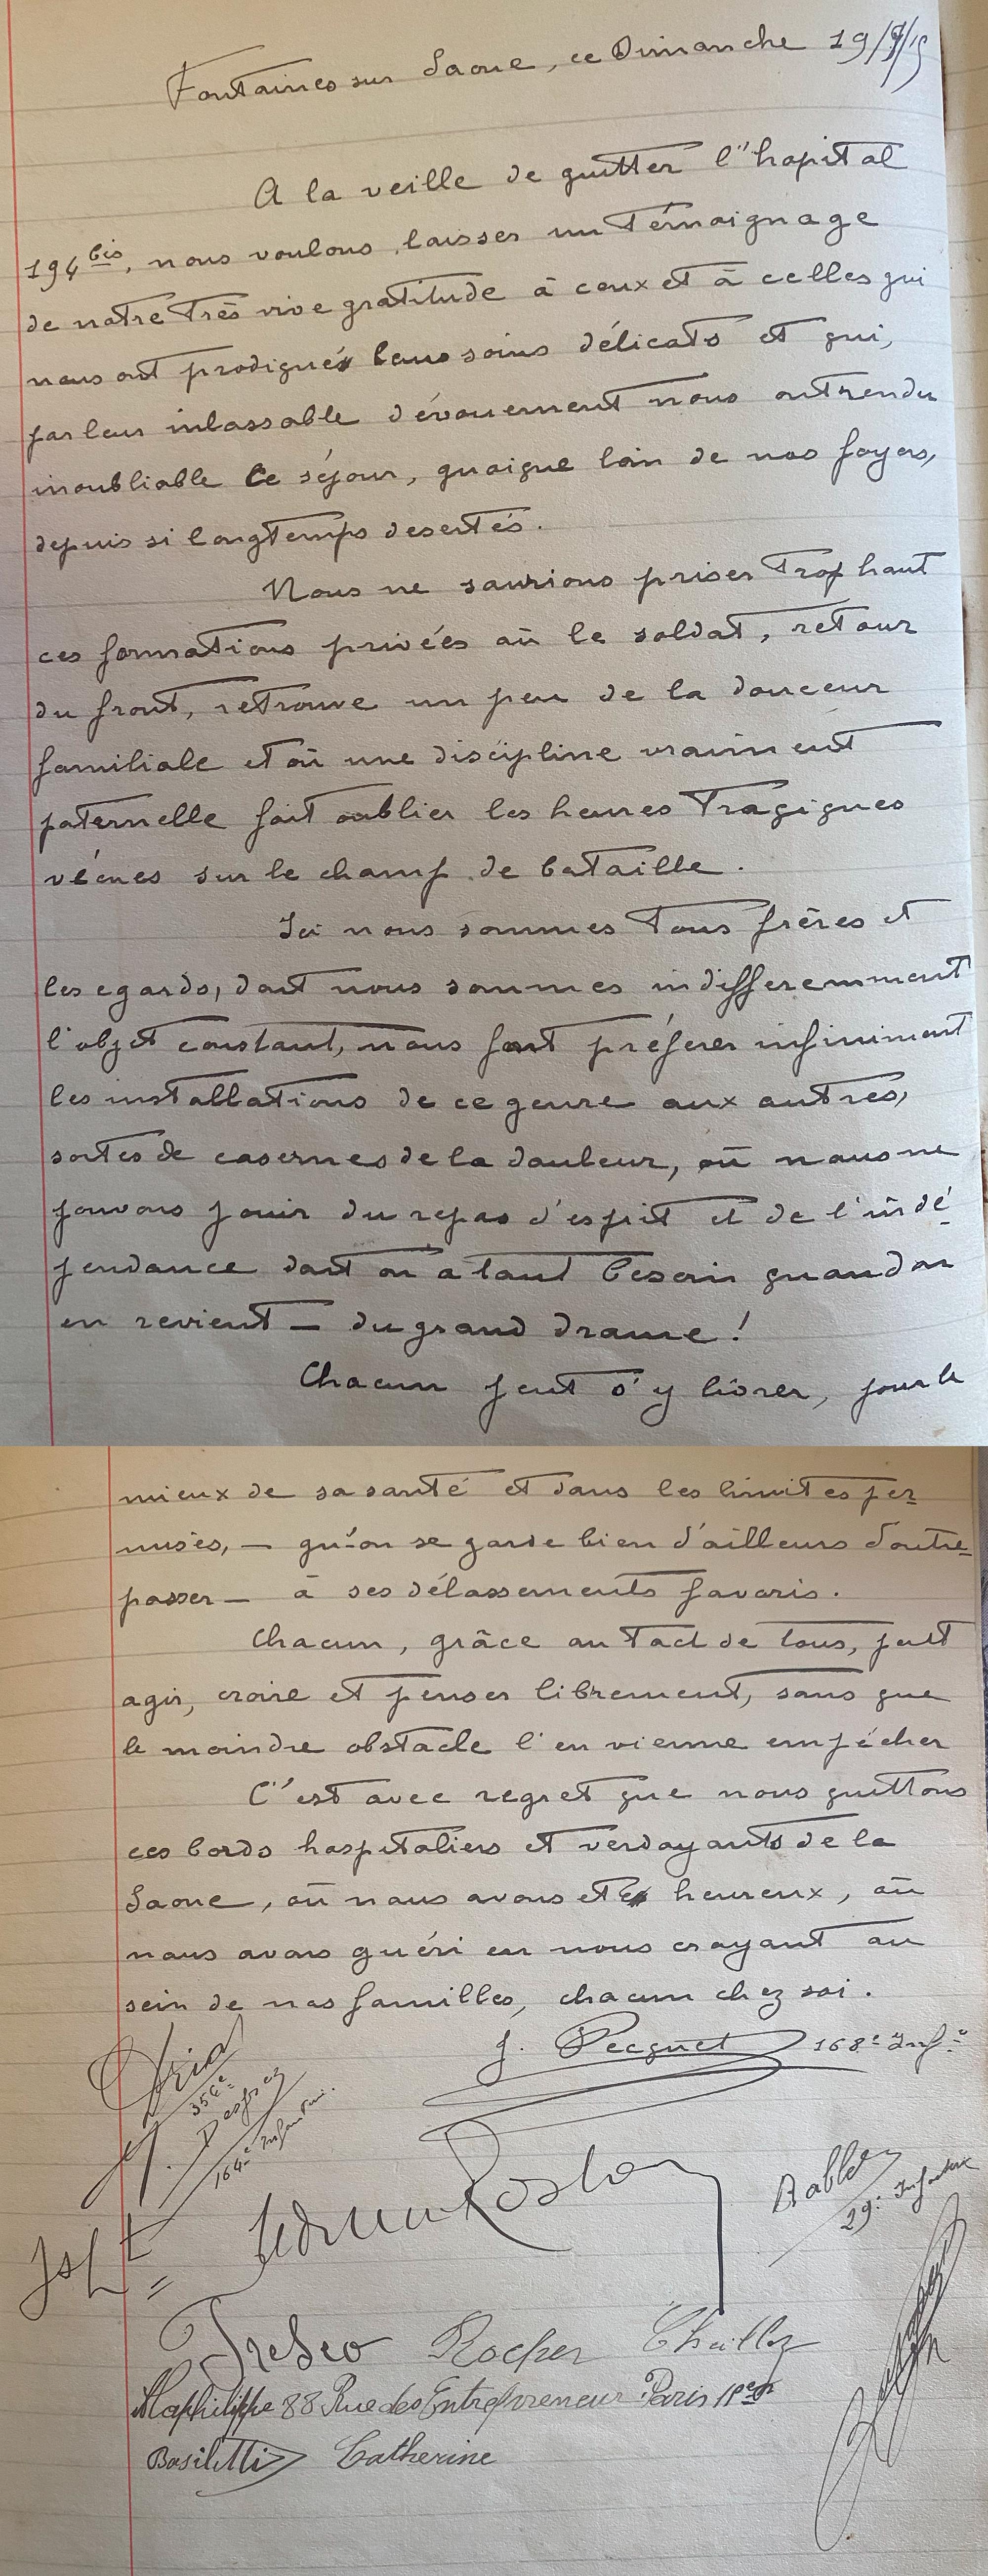 Fontaines sur Saone, ce Dimanche 19/9/15
A la veille de quitter l'hopital
194 bis, nous voulons laisser un témoignage
de notre très vive gratitude à ceux et à celles qui
nous ont prodigués leurs soins délicats et qui,
par leur inlassable dévouement nous ont rendu
inoubliable ce séjour, quoique loin de nos foyers,
depuis si longtemps desertés.
Nous ne saurions priser trop haut
ces formations privées où le soldat, retour
du front, retrouve un peu de la douceur
familiale et où une discipline vraiment
paternelle fait oublier les heures tragiques
vécues sur le champ de bataille.
Ici nous sommes tous frères et
les egards, dont nous sommes indifferemment
l'objet constant, nous font préferer infiniment
les installations de ce genre aux autres,
sortes de casernes de la douleur, où nous ne
pouvons jouir du repos d'esprit et de l'indé-
pendance dont on a tant besoin quand on
en revient — du grand drame!
Chacun peut s'y livrer, pour le
mieux de sa santé et dans les limites per-
mises, — qu'on se garde bien d'ailleurs d'outre-
passer — à ses délassements favoris.
Chacun, grâce au tact de tous, peut
agir, croire et penser librement, sans que
le moindre obstacle l'en vienne empécher
C'est avec regret que nous quittons
ces bords hospitaliers et verdoyants de la
Saone, où nous avons été heureux, où
nous avons guéri en nous croyant au
sein de nos familles, chacun chez soi.
J. Pecquet 168e Inf.ie
Desprez
164e Infanterie.
29e Infanterie
Rocher
88 Rue des Entrepreneur Paris 15em
Basiletti Catherine